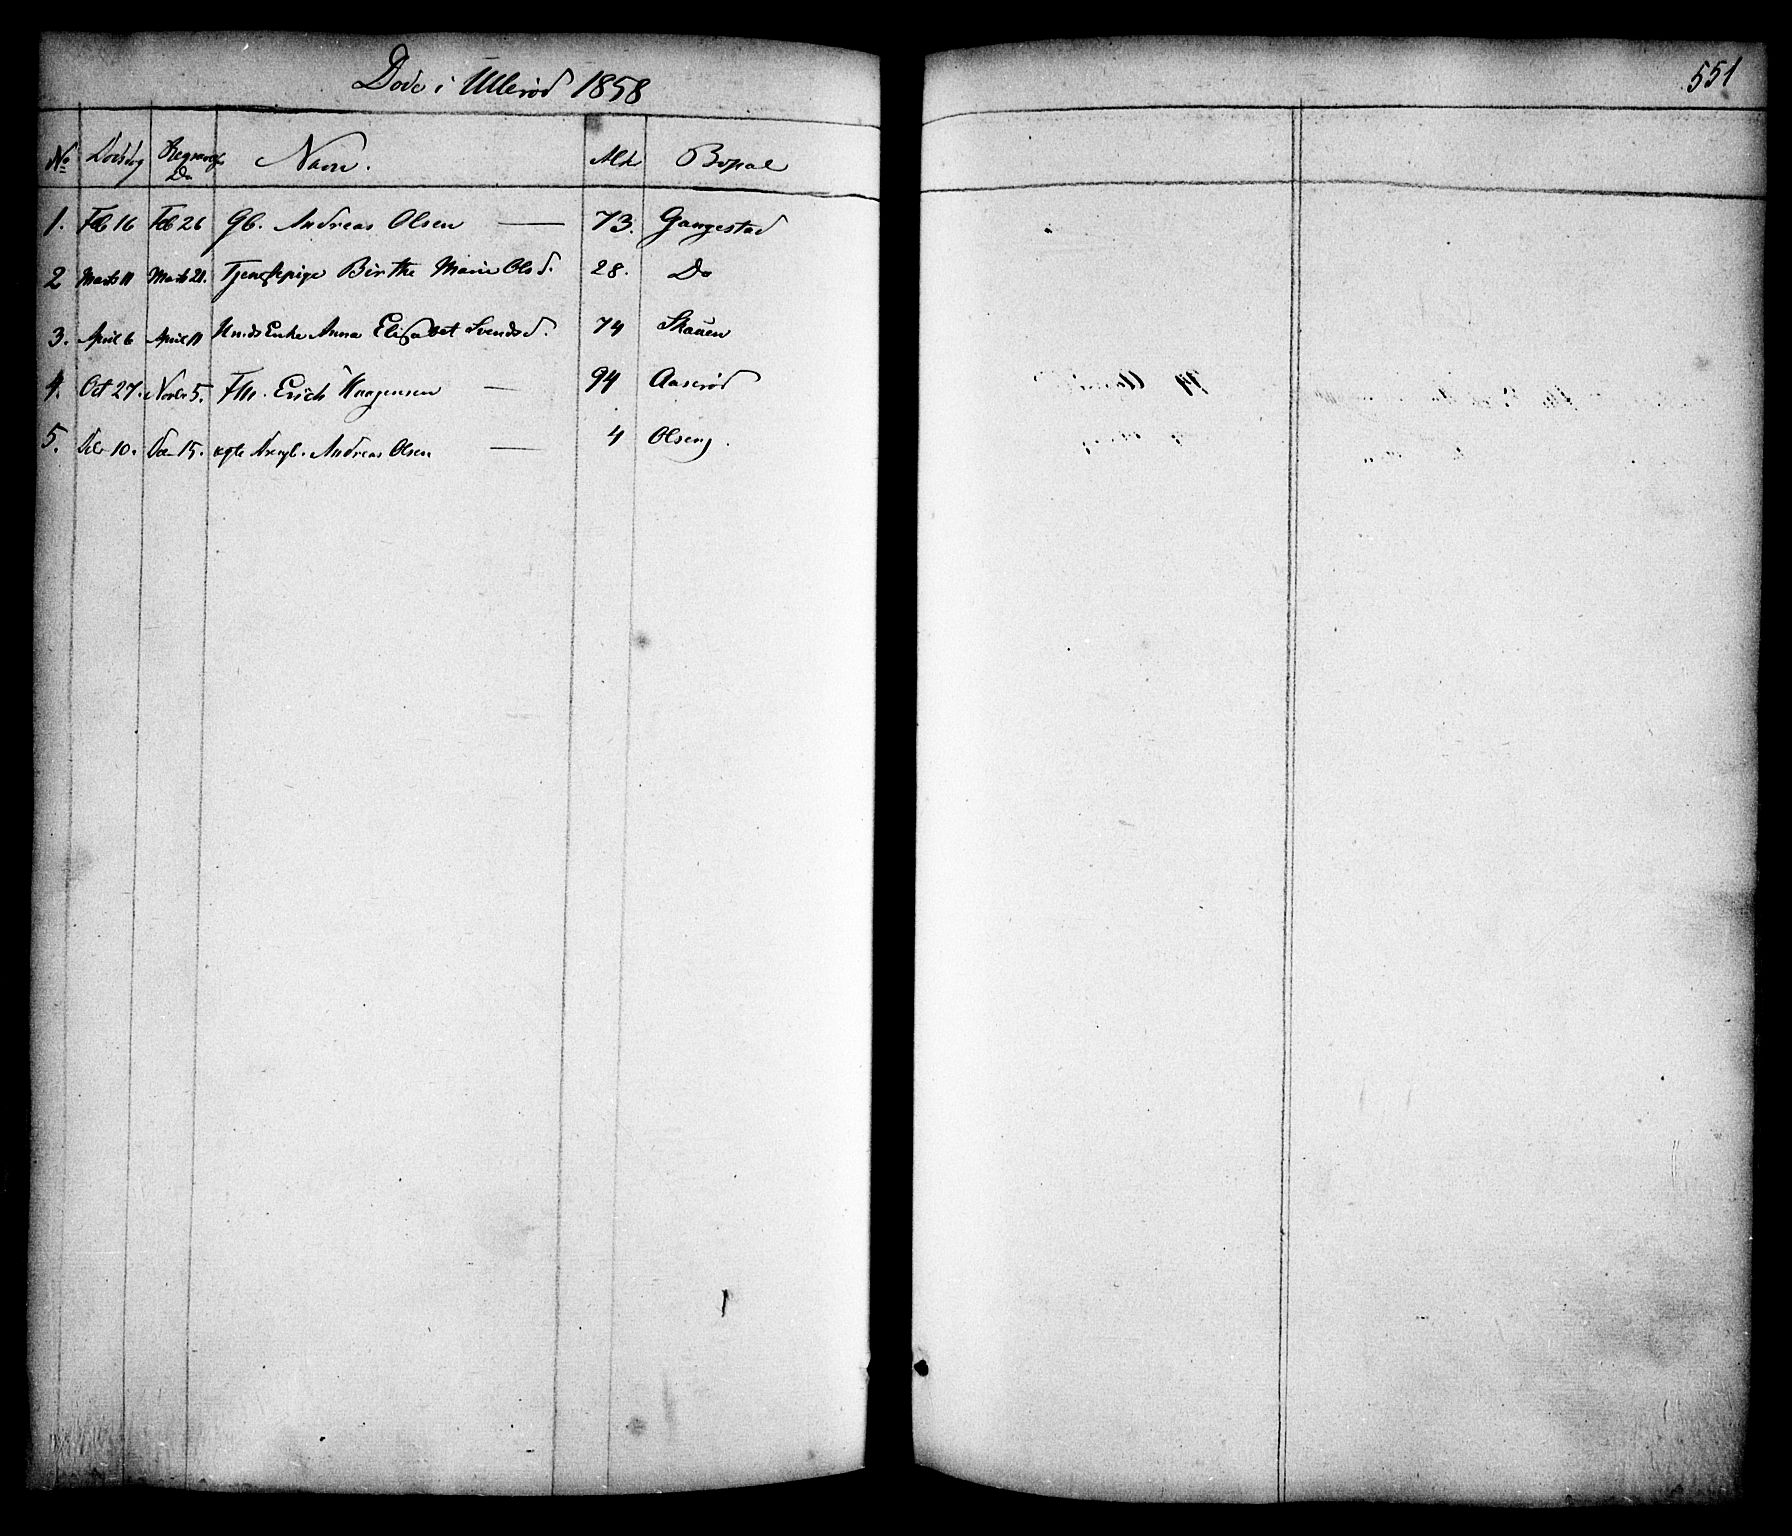 Døde i Ullerød 1858
551
No Dødsdag Begravelses Do Navn. Alder Bopæl
1. Feb 16 Feb 26 Gb. Andreas Olsen — 73. Gangestad
2 Marts 11 Marts 21. Tjenestepige Birthe Marie Olsd. 28. Do
3. April 6 April 11 Enke Anna Elisabet Svendsd. 74 Skauen
4. Oct 27. Novbr 5. Fm. Erich Haagensen — 94 Aaserød
5. Dcbr 10. Dcbr 15. Andreas Olsen — 4 Olseng.